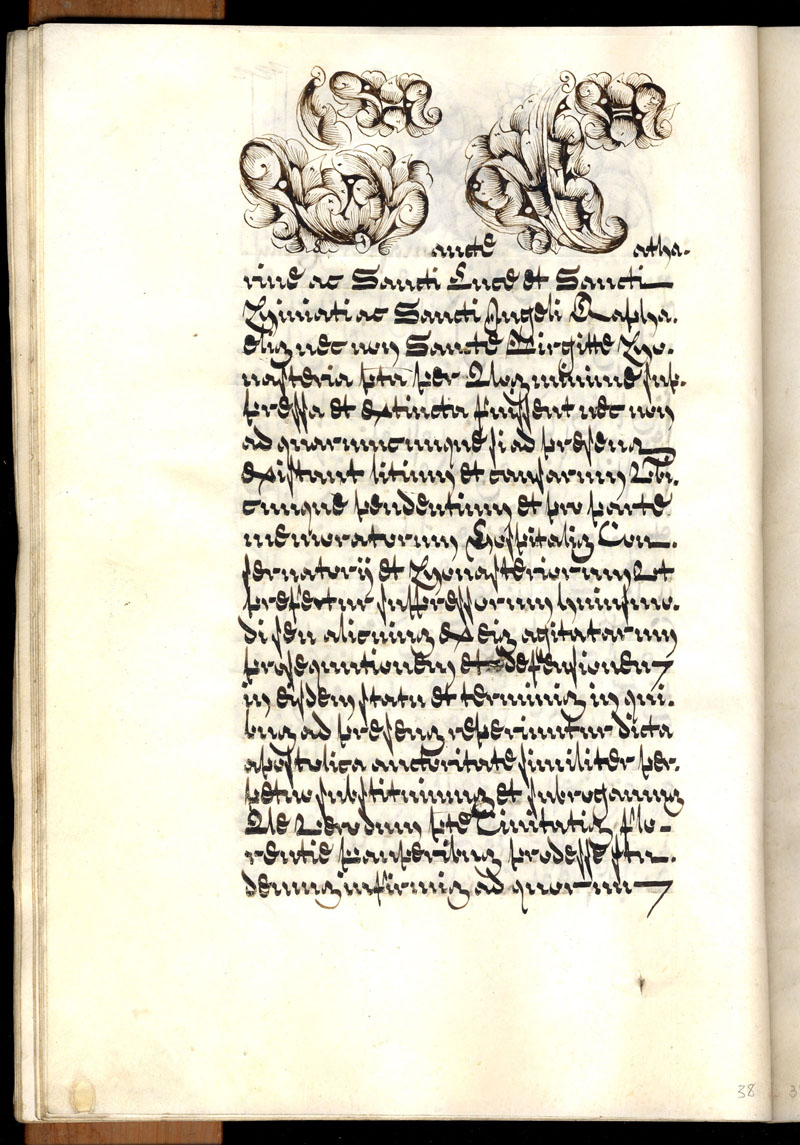 Sancte Catha-
rine ac Sancti Luce et Sancti
Miniati ac Sancti Angeli Rapha.
elis nec non Sancte Birgitte Mo.
nasteria pta per Nos minime sup.
pressa et extincta fuissent nec non
ad quarumcunque si ad presens
existant litium et causarum Ubi.
cunque pendentium et pro parte
memoratorum Hospitalis Con.
servatorij et Monasteriorum Ut
prefertur suppressorum huiusmo.
di seu alicuius ex eis agitatarum
prosequutionem et defensionem
in eisdem statu et terminis in qui.
bus ad presens reperiuntur dicta
apostolica auctoritate similiter per.
petuo substituimus et subrogamus
Ne Vero dum pte Civitatis Flo-
rentie Pauperibus prodesse stu.
demus infirmis ad quorum
38